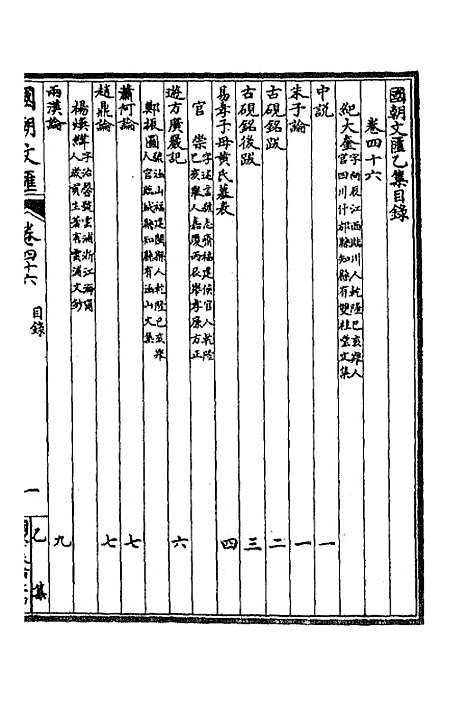 國朝文匯乙集目錄
卷四十六
紀大奎字向辰江西臨川人乾隆己亥舉人
官四川什邡縣知縣有雙桂堂文集
中説 一
朱子論 一
古硯銘跋 二
古硯銘後跋 三
易孝子母黄氏墓表 四
官崇字述言號志齋福建侯官人乾隆
己亥舉人嘉慶丙辰舉孝廉方正
遊方廣巖記 六
鄭振圖號涵山福建閩縣人乾隆己亥舉
人官臨城縣知縣有涵山文集
蕭何論 七
趙鼎論 七
兩漢論 九
楊煐輝字治磐號雲浦浙江海寧
人歲貢生著有雲浦文鈔
國朝文匯
卷四十六
目錄
一
乙集